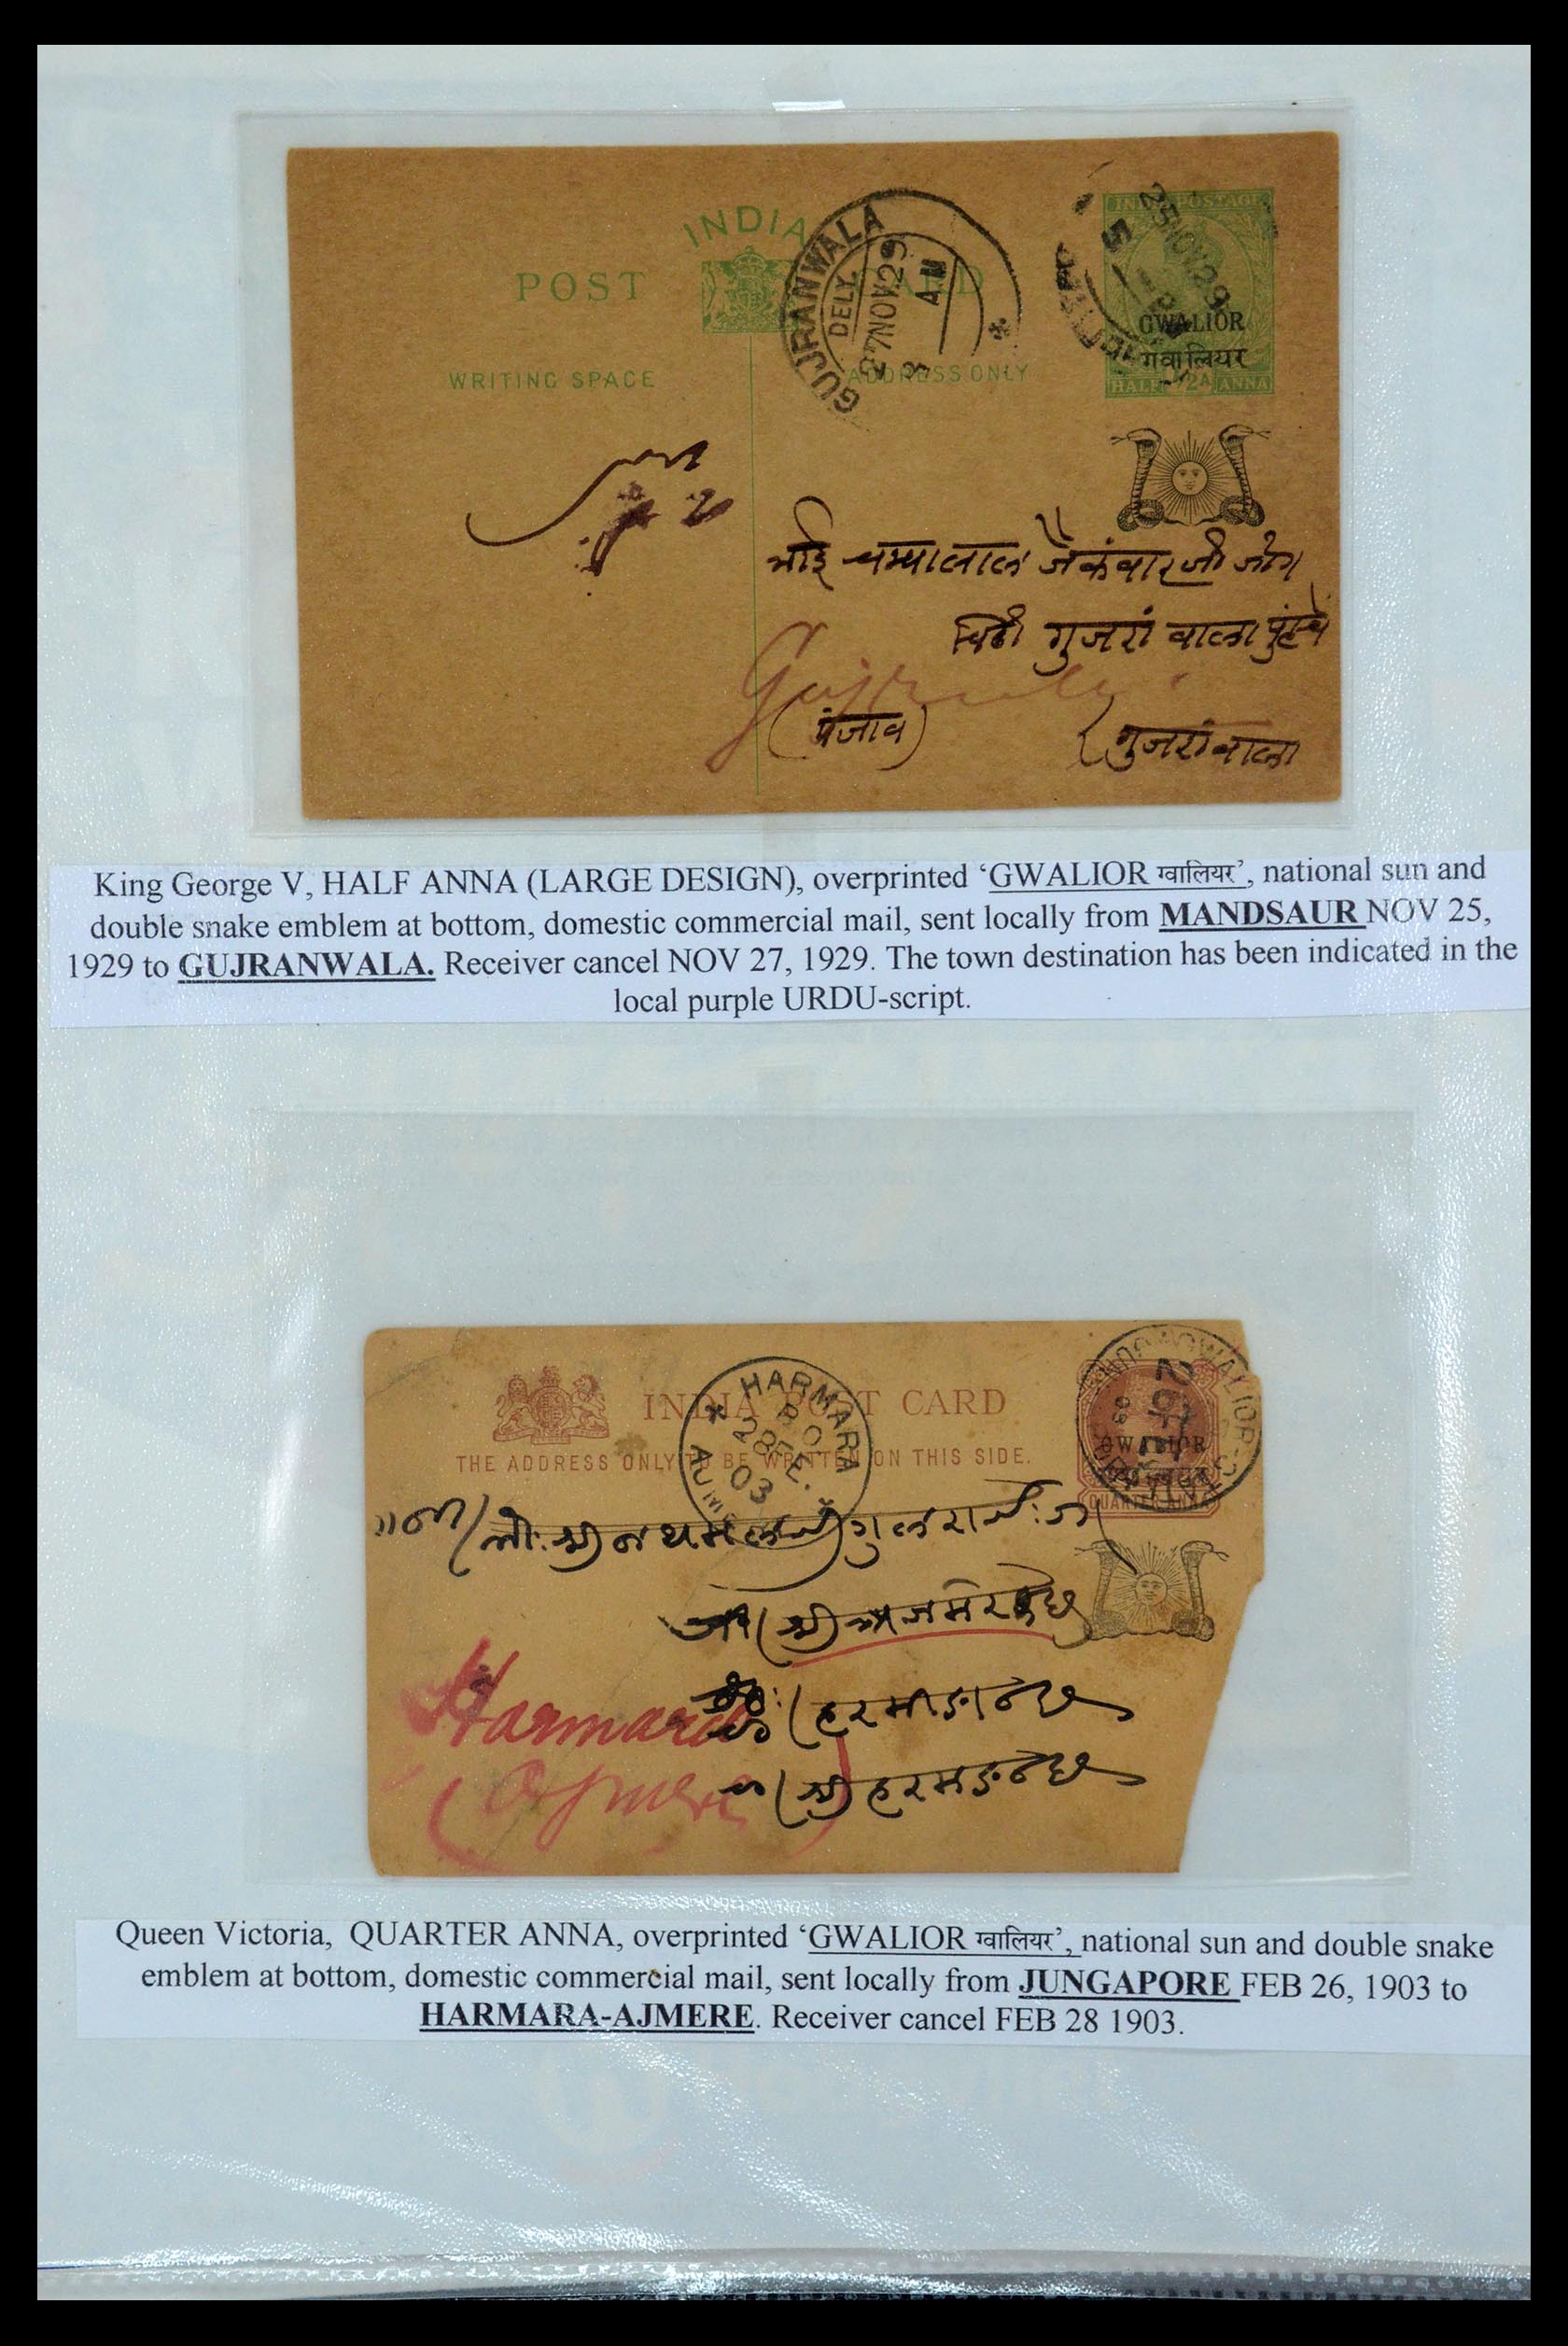 INDIA
POST CARD
WRITING SPACE ADDRESS ONLY
GUJRANWALA
DELY.
27NOV.29
AM
25NOV29
INDIA POSTAGE
GWALIOR
गवालियर
HALF 1/2A ANNA
भाई चम्पालाल जैकंवारजी जोग
चिठी गुजरां वाला पुंहचे
(पंजाब) (गुजरांवाला
King George V, HALF ANNA (LARGE DESIGN), overprinted ‘GWALIOR ग्वालियर’, national sun and
double snake emblem at bottom, domestic commercial mail, sent locally from MANDSAUR NOV 25,
1929 to GUJRANWALA. Receiver cancel NOV 27, 1929. The town destination has been indicated in the
local purple URDU-script.
INDIA POST CARD
THE ADDRESS ONLY TO BE WRITTEN ON THIS SIDE.
HARMARA
28 FE.
03
GWALIOR
QUARTER ANNA
Harmara
(Ajmere)
Queen Victoria, QUARTER ANNA, overprinted ‘GWALIOR ग्वालियर’, national sun and double snake
emblem at bottom, domestic commercial mail, sent locally from JUNGAPORE FEB 26, 1903 to
HARMARA-AJMERE. Receiver cancel FEB 28 1903.